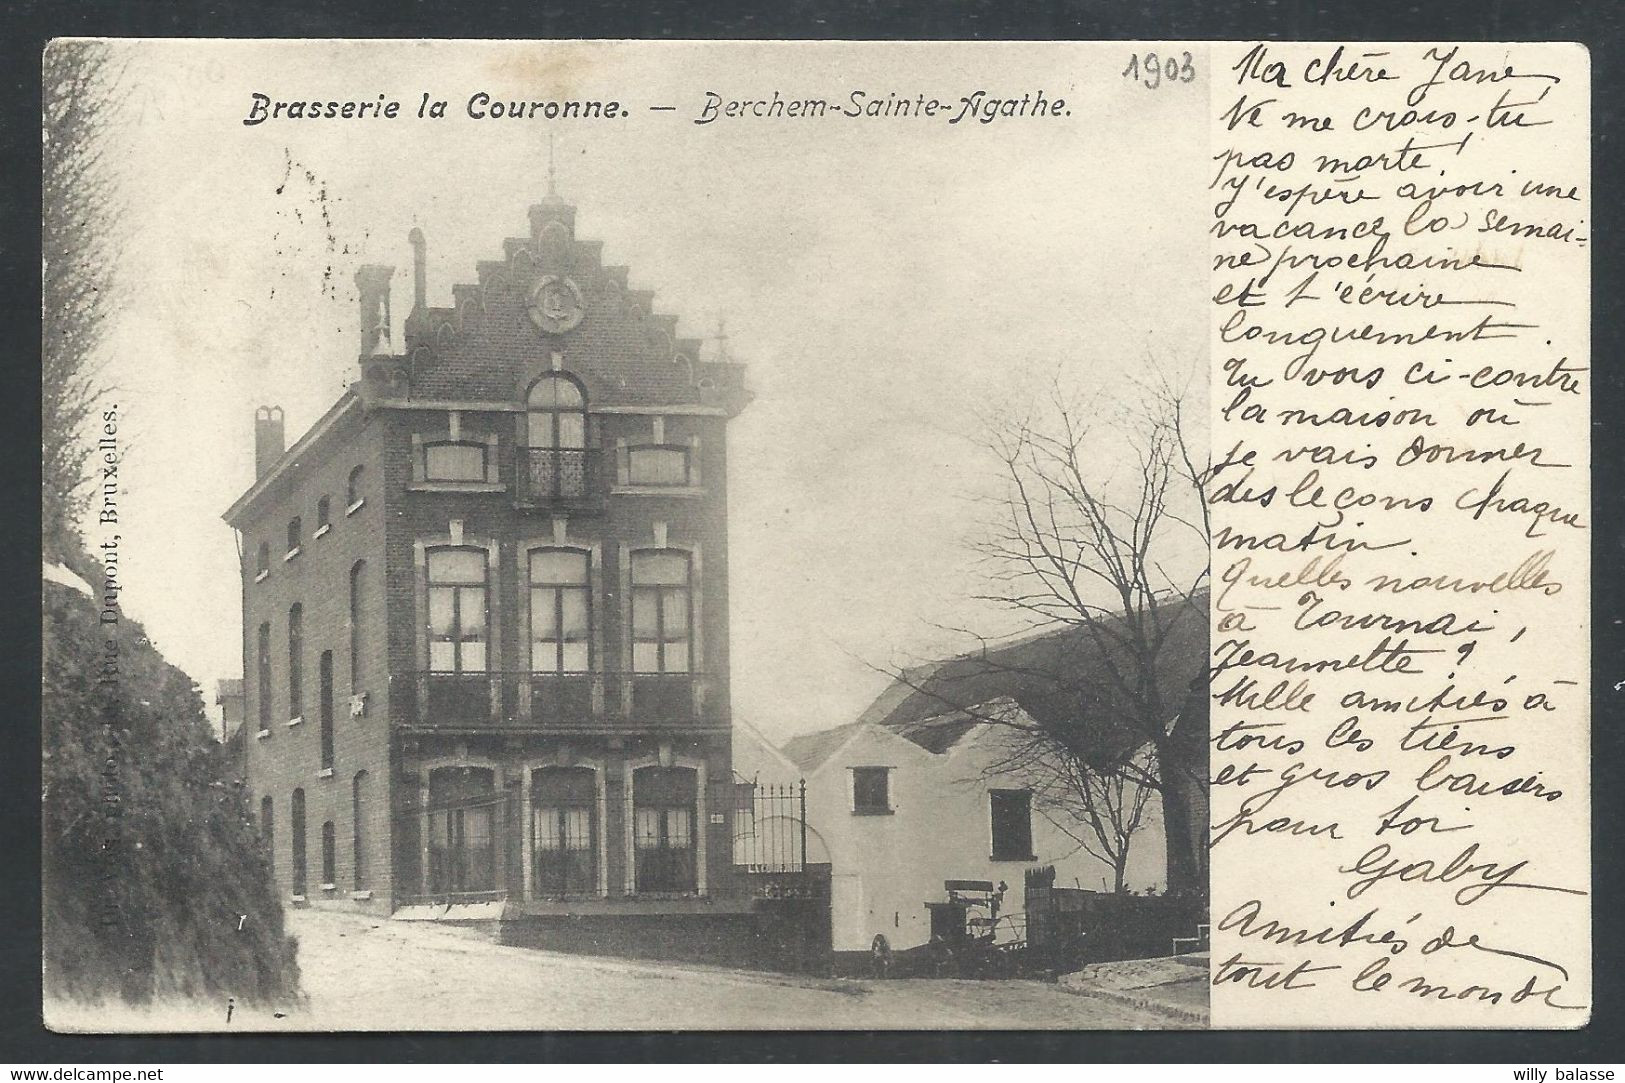 1903
Brasserie la Couronne. — Berchem-Sainte-Agathe.
Ma chère Jane,
Ne me crois-tu
pas morte!
J'espère avoir une
vacance la semai-
ne prochaine
et t'écrire
longuement.
Tu vois ci-contre
la maison où
je vais donner
des leçons chaque
matin.
Quelles nouvelles
à Tournai,
Jeannette?
Mille amitiés à
tous les tiens
et gros baisers
pour toi
Gaby
Amitiés de
tout le monde
Rue Dupont, Bruxelles.
willy balasse